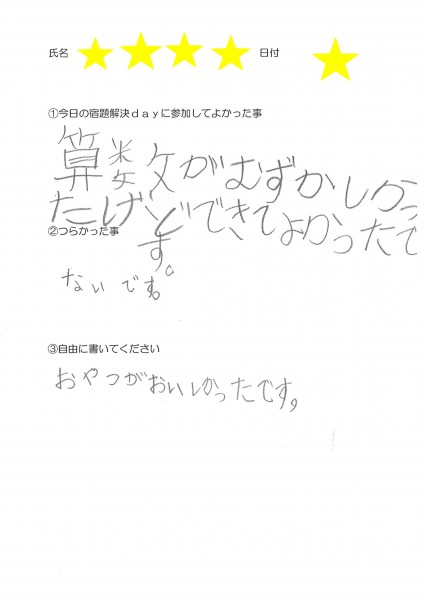 氏名 日付
①今日の宿題解決ｄａｙに参加してよかった事
算数がむずかしかっ
たけどできてよかったで
す。
②つらかった事
ないです。
③自由に書いてください
おやつがおいしかったです。